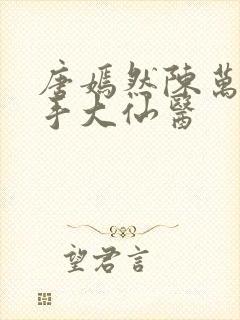 唐嫣然陳萬
手大仙醫
望君言